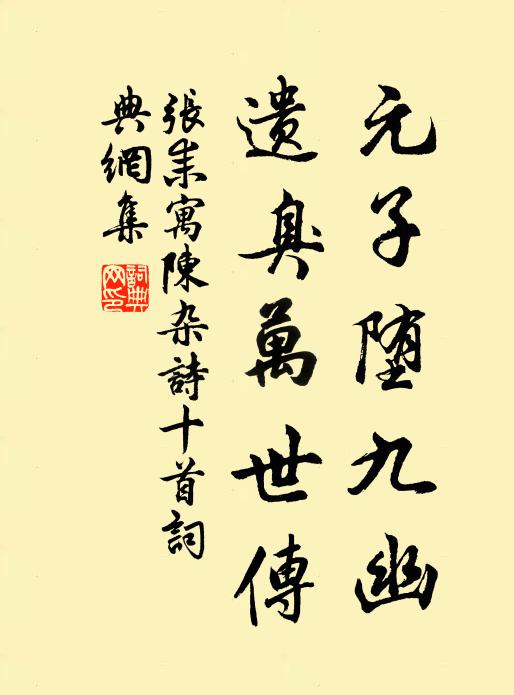 元子堕九幽
遗臭萬世傳
張耒寓陳杂詩十首詞
典網集
詞典
网印